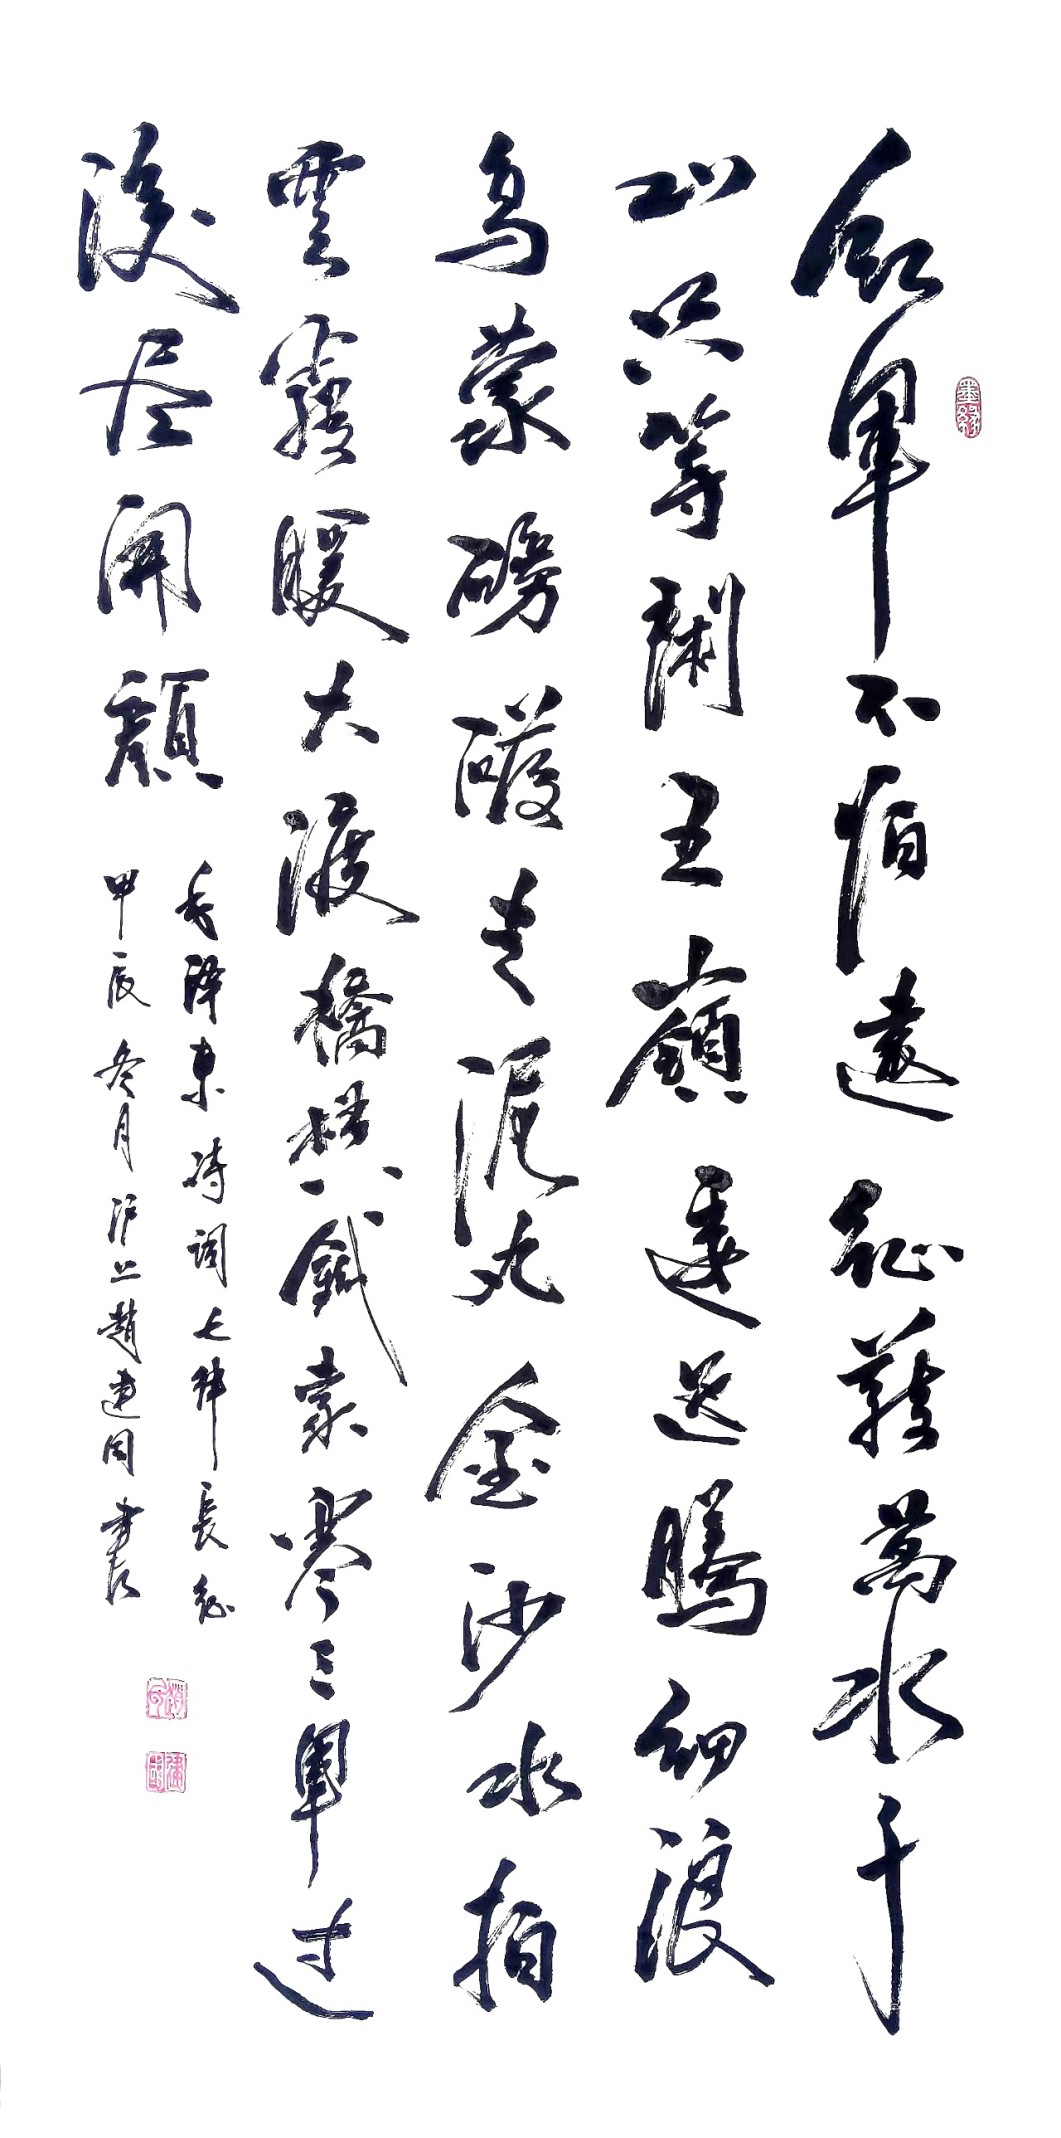 紅軍不怕遠征難萬水千
山只等閑五嶺逶迤騰細浪
烏蒙磅礴走泥丸金沙水拍
雲暖大渡橋橫鐵索寒三軍過
後尽開顏
毛泽東詩詞七律長征
甲辰冬月沪上趙建国書
墨緣